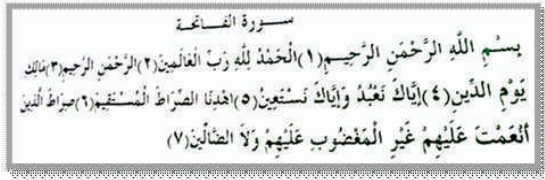 سورة الفاتحة
بِسْمِ اللَّهِ الرَّحْمَنِ الرَّحِيمِ(١)الْحَمْدُ لِلَّهِ رَبِّ الْعَالَمِينَ(٢)الرَّحْمَنِ الرَّحِيمِ(٣)مَالِكِ
يَوْمِ الدِّينِ(٤)إِيَّاكَ نَعْبُدُ وَإِيَّاكَ نَسْتَعِينُ(٥)اهْدِنَا الصِّرَاطَ الْمُسْتَقِيمَ(٦)صِرَاطَ الَّذِينَ
أَنْعَمْتَ عَلَيْهِمْ غَيْرِ الْمَغْضُوبِ عَلَيْهِمْ وَلَا الضَّالِّينَ(٧)